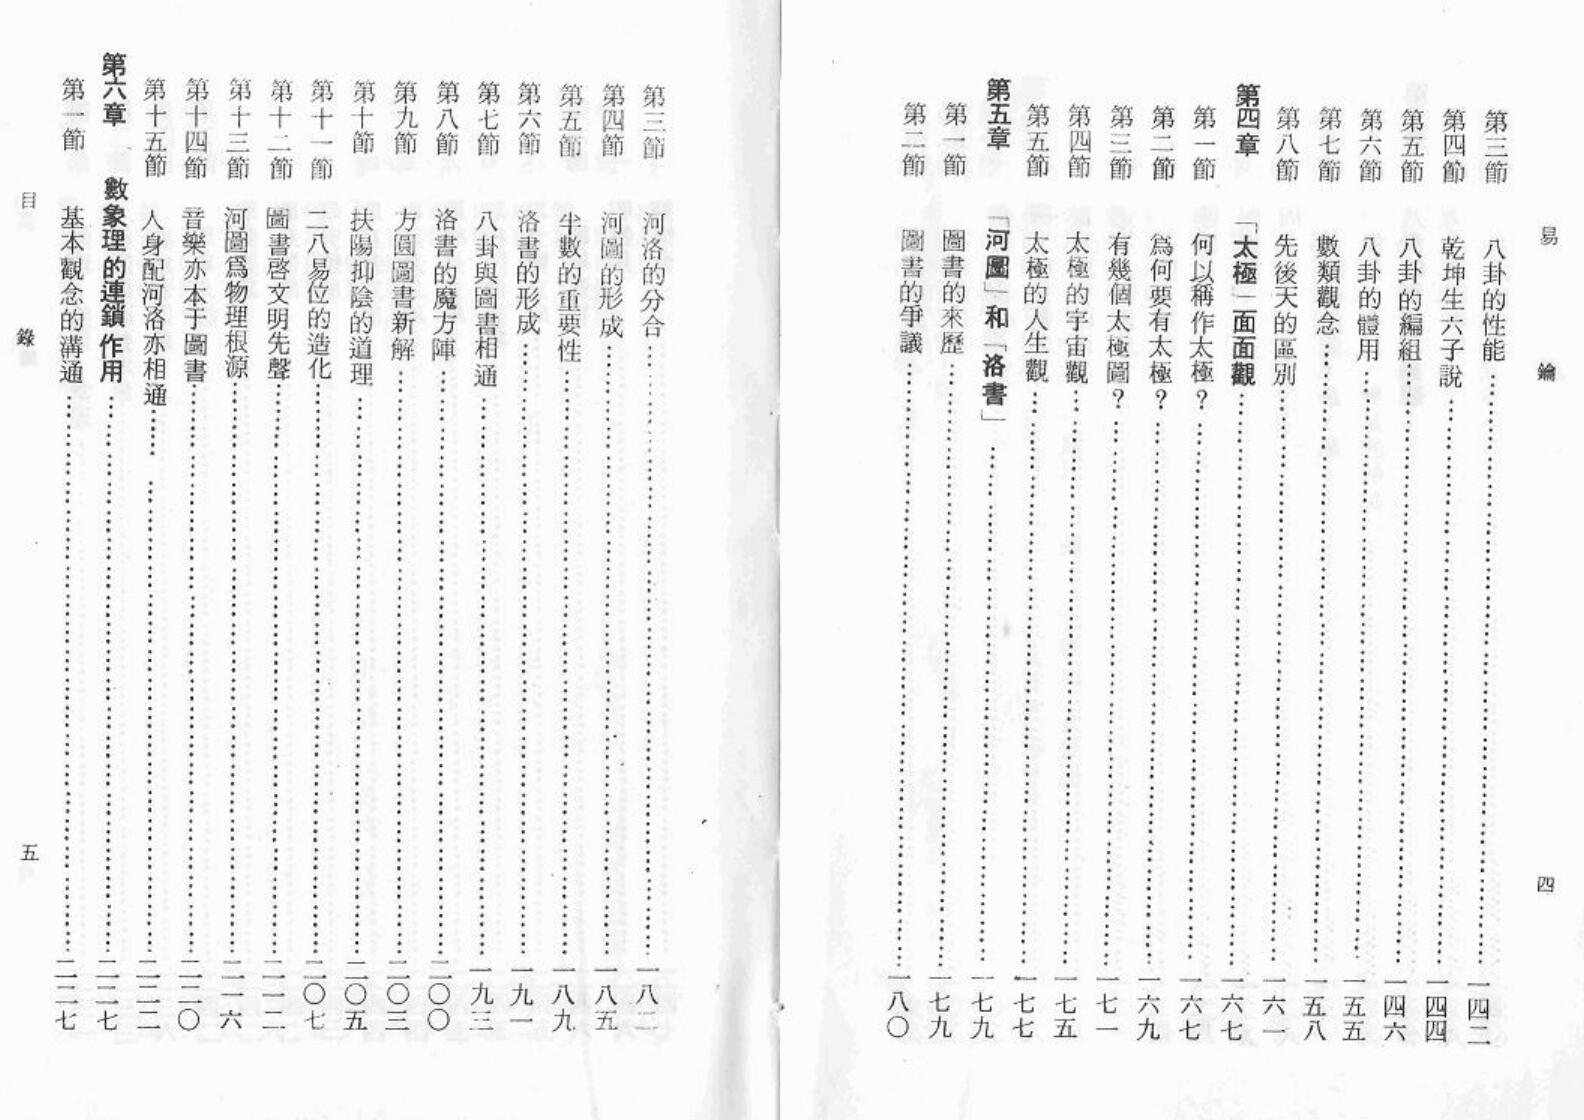 易鑰
四
第三節 八卦的性能 一四二
第四節 乾坤生六子說 一四四
第五節 八卦的編組 一四六
第六節 八卦的體用 一五五
第七節 數類觀念 一五八
第八節 先後天的區別 一六一
第四章 「太極」面面觀 一六七
第一節 何以稱作太極？ 一六七
第二節 爲何要有太極？ 一六九
第三節 有幾個太極圖？ 一七一
第四節 太極的宇宙觀 一七五
第五節 太極的人生觀 一七七
第五章 「河圖」和「洛書」 一七九
第一節 圖書的來歷 一七九
第二節 圖書的爭議 一八〇
第三節 河洛的分合 一八二
第四節 河圖的形成 一八五
第五節 半數的重要性 一八九
第六節 洛書的形成 一九一
第七節 八卦與圖書相通 一九三
第八節 洛書的魔方陣 二〇〇
第九節 方圓圖書新解 二〇三
第十節 扶陽抑陰的道理 二〇五
第十一節 二八易位的造化 二〇七
第十二節 圖書啓文明先聲 二一二
第十三節 河圖爲物理根源 二一六
第十四節 音樂亦本于圖書 二二〇
第十五節 人身配河洛亦相通 二二二
第六章 數象理的連鎖作用 二二七
第一節 基本觀念的溝通 二二七
目錄
五